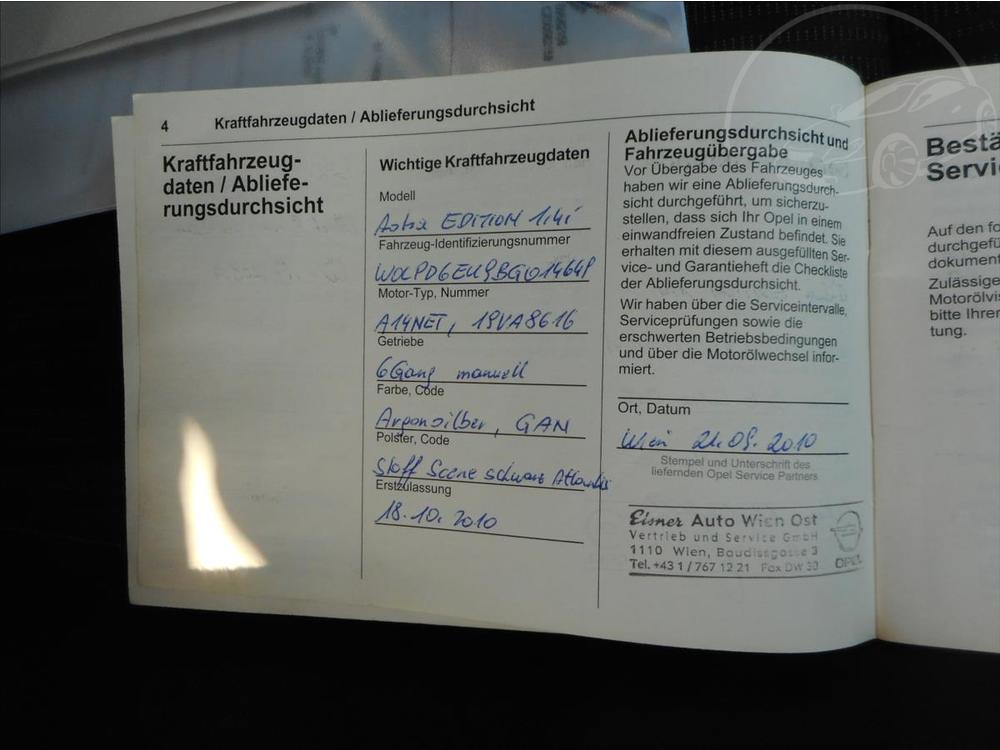 4 Kraftfahrzeugdaten / Ablieferungsdurchsicht
Kraftfahrzeug-
daten / Abliefe-
rungsdurchsicht
Wichtige Kraftfahrzeugdaten
Modell
Astra EDITION 1.4i
Fahrzeug-Identifizierungsnummer
Motor-Typ, Nummer
A14NET, 19VA8616
Getriebe
6Gang manuell
Farbe, Code
Argonsilber, GAN
Polster, Code
Stoff Scene schwarz Atlantis
Erstzulassung
18.10.2010
Ablieferungsdurchsicht und
Fahrzeugübergabe
Vor Übergabe des Fahrzeuges
haben wir eine Ablieferungsdurch-
sicht durchgeführt, um sicherzu-
stellen, dass sich Ihr Opel in einem
einwandfreien Zustand befindet. Sie
erhalten mit diesem ausgefüllten Ser-
vice- und Garantieheft die Checkliste
der Ablieferungsdurchsicht.
Wir haben über die Serviceintervalle,
Serviceprüfungen sowie die
erschwerten Betriebsbedingungen
und über die Motorölwechsel infor-
miert.
Ort, Datum
Wien 21.09.2010
Stempel und Unterschrift des
liefernden Opel Service Partners
Eisner Auto Wien Ost
Vertrieb und Service GmbH
1110 Wien, Baudissgasse 3
Tel. +43 1 / 767 12 21 Fax DW 30
OPEL
Bestä
Servic
Auf den fo
durchgefü
dokument
Zulässige
Motorölvis
bitte Ihren
tung.